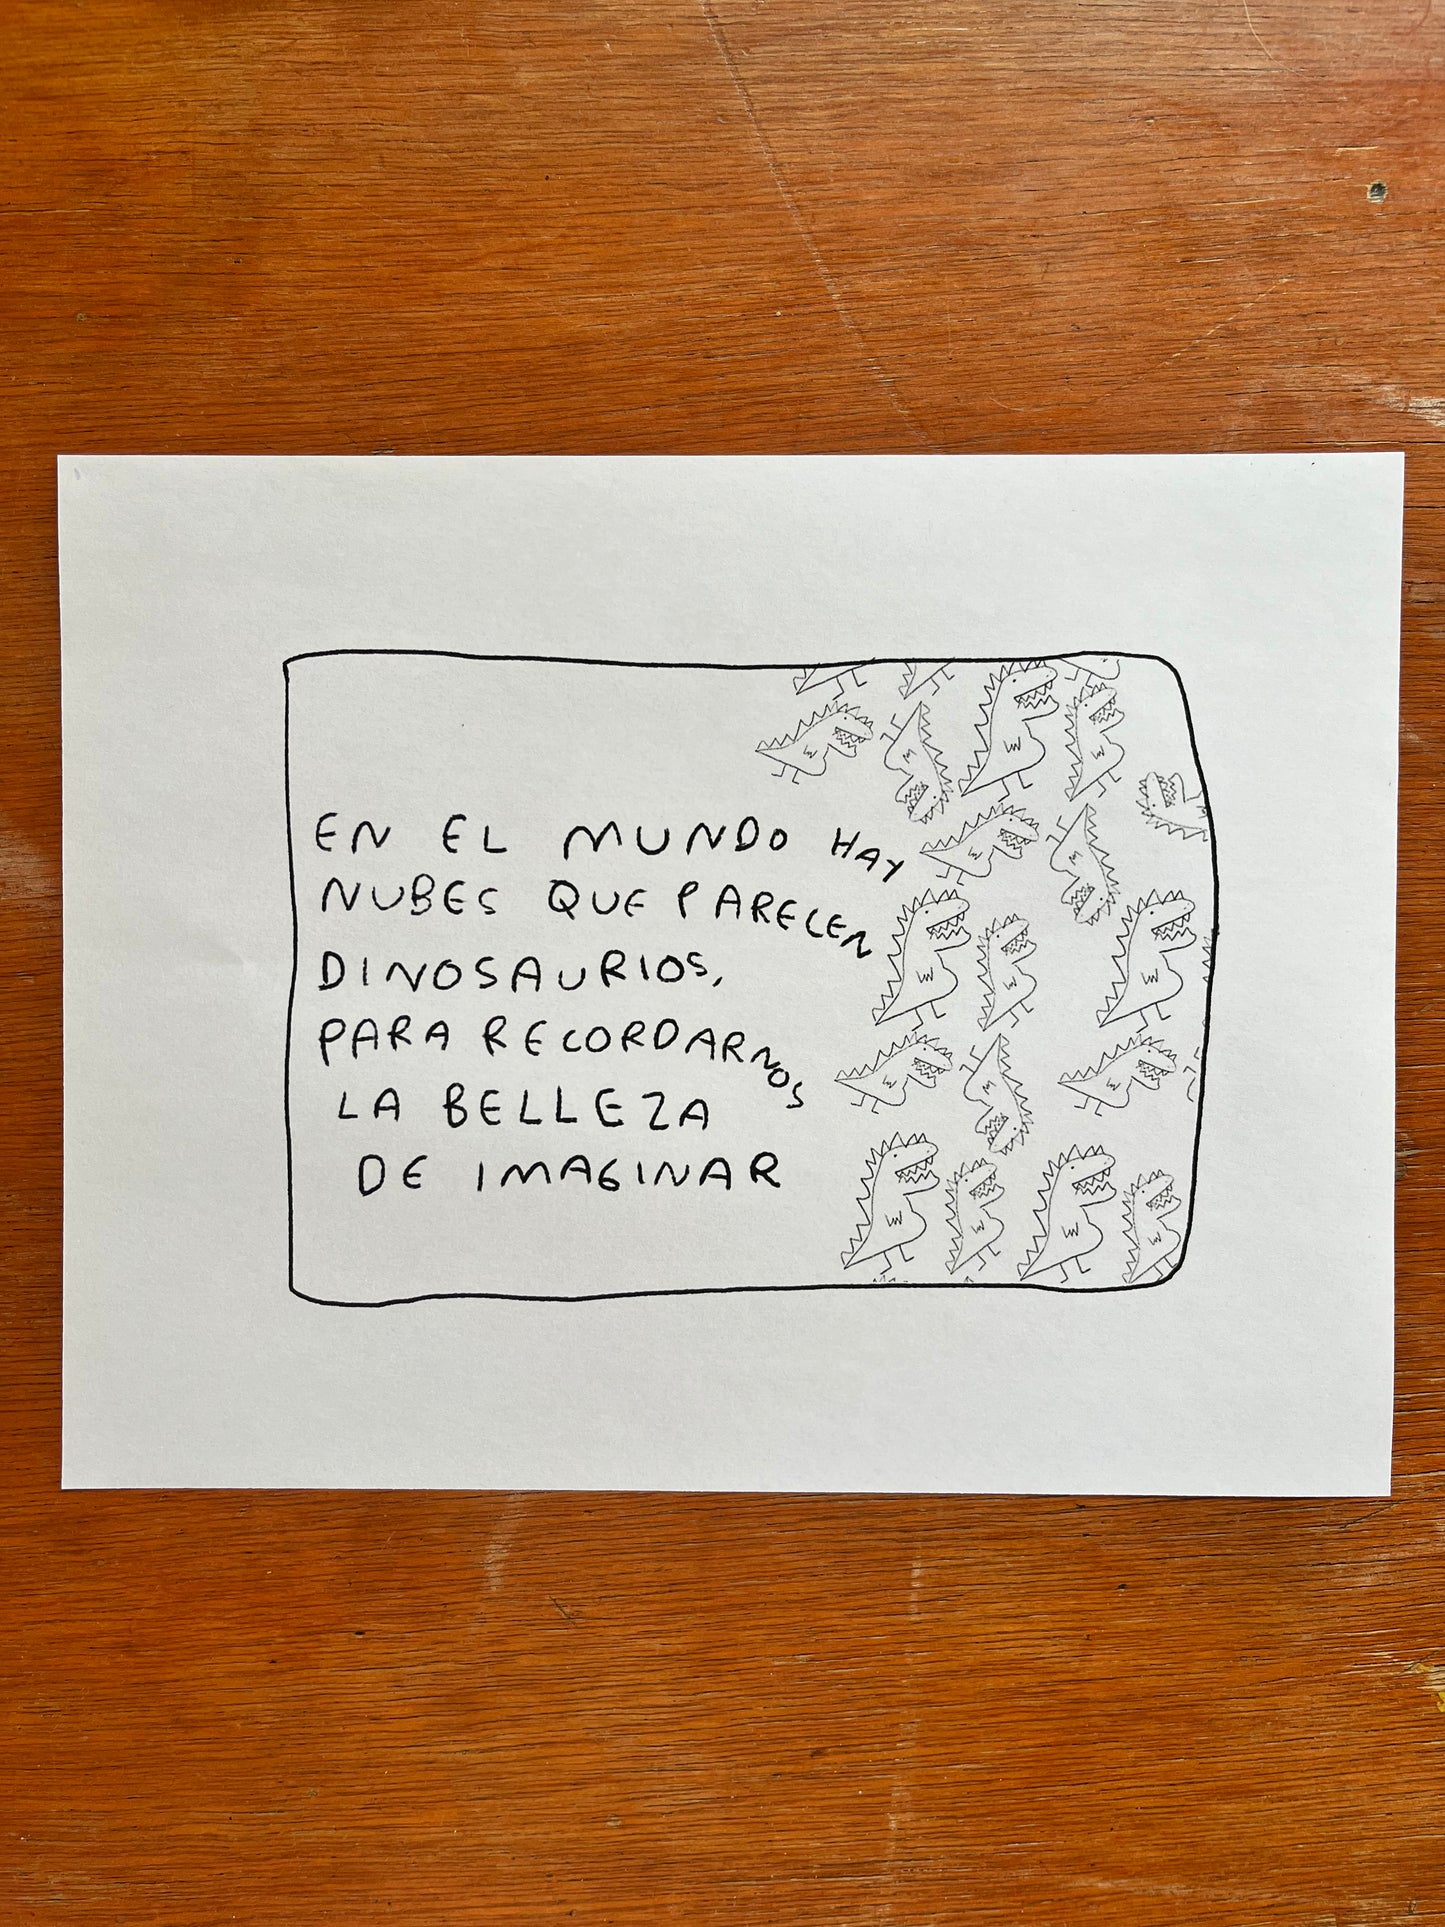 EN EL MUNDO HAY
NUBES QUE PARECEN
DINOSAURIOS,
PARA RECORDARNOS
LA BELLEZA
DE IMAGINAR